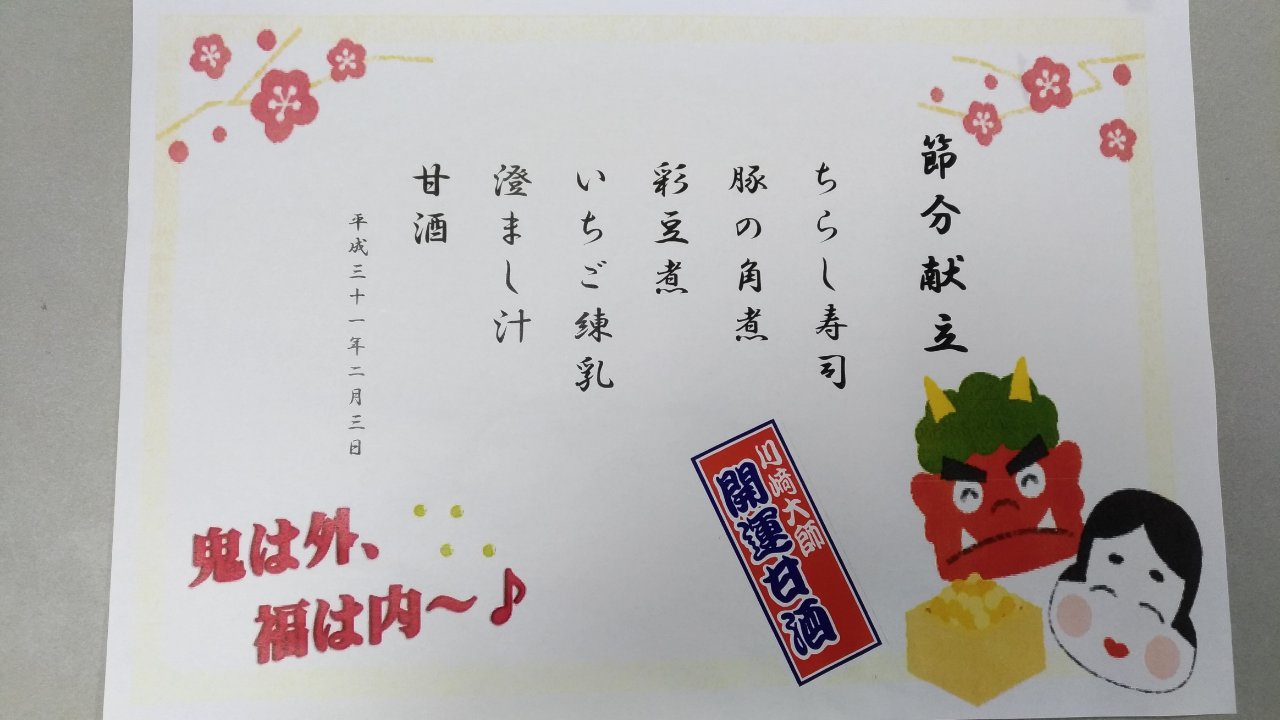 節分献立
ちらし寿司
豚の角煮
彩豆煮
いちご練乳
澄まし汁
甘酒
平成三十一年二月三日
川崎大師
開運甘酒
鬼は外、
福は内～♪